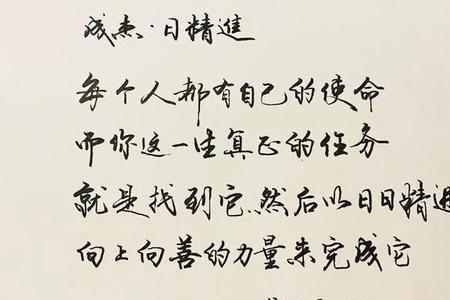 成杰·日精進
每个人都有自己的使命
而你这一生真正的任务
就是找到它.然后以日日精進
向上向善的力量来完成它